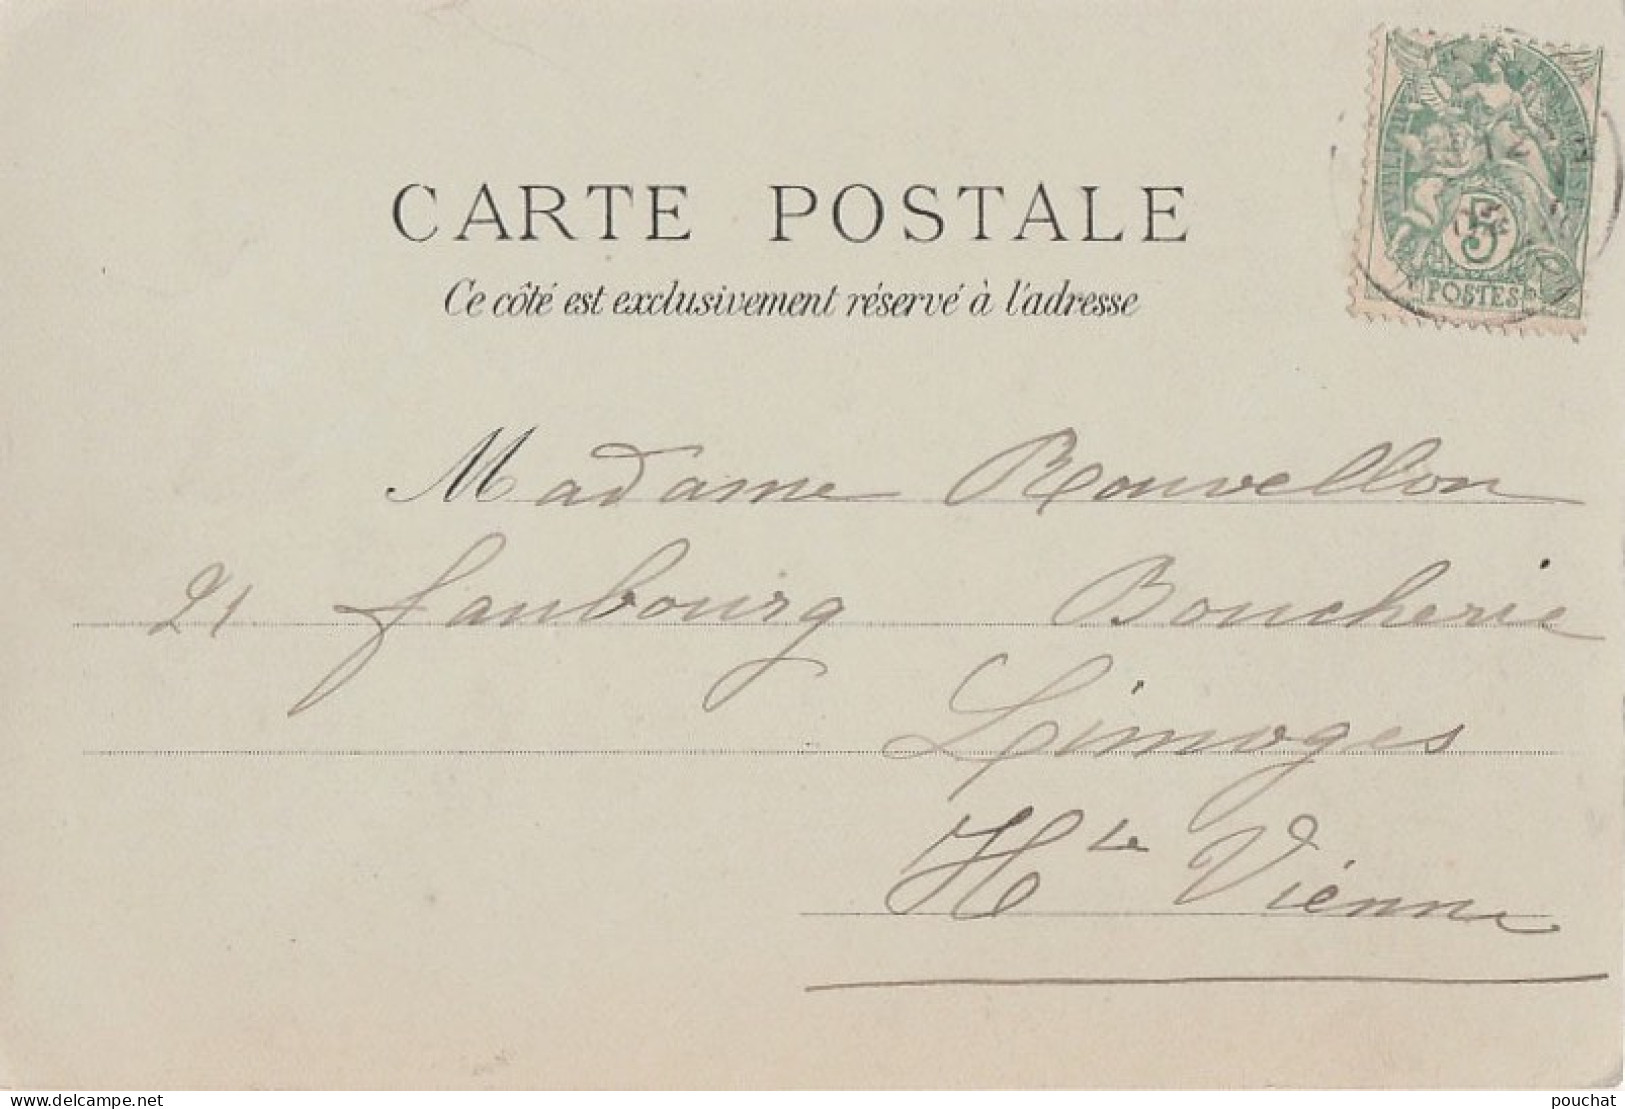 CARTE POSTALE
Ce côté est exclusivement réservé à l'adresse
5
POSTES
Madame Rouvellon
21 faubourg Boucherie
Limoges
Hte Vienne
www.delcampe.net
pouchat